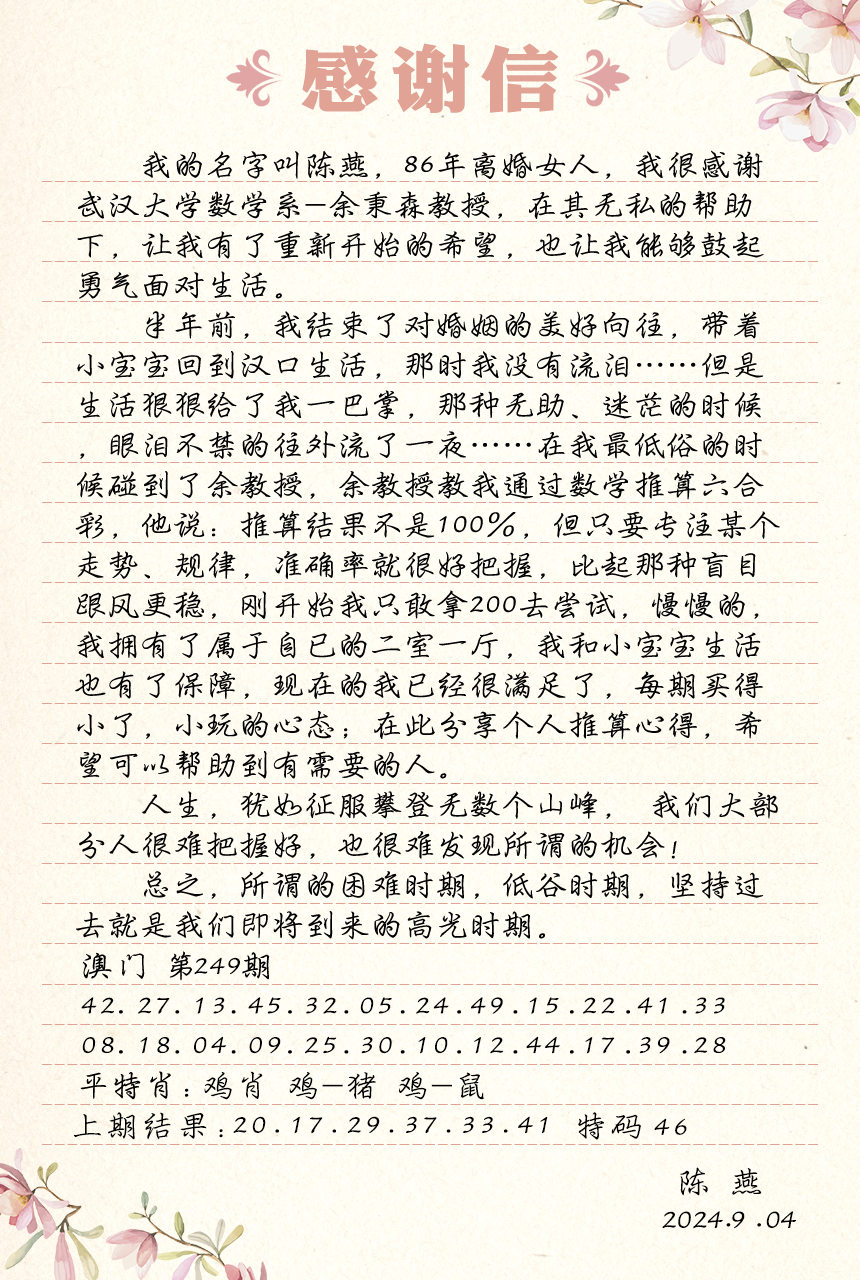 感谢信
我的名字叫陈燕，86年离婚女人，我很感谢
武汉大学数学系—余秉森教授，在其无私的帮助
下，让我有了重新开始的希望，也让我能够鼓起
勇气面对生活。
半年前，我结束了对婚姻的美好向往，带着
小宝宝回到汉口生活，那时我没有流泪……但是
生活狠狠给了我一巴掌，那种无助、迷茫的时候
，眼泪不禁的往外流了一夜……在我最低俗的时
候碰到了余教授，余教授教我通过数学推算六合
彩，他说：推算结果不是100%，但只要专注某个
走势、规律，准确率就很好把握，比起那种盲目
跟风更稳，刚开始我只敢拿200去尝试，慢慢的，
我拥有了属于自已的二室一厅，我和小宝宝生活
也有了保障，现在的我已经很满足了，每期买得
小了，小玩的心态；在此分享个人推算心得，希
望可以帮助到有需要的人。
人生，犹如征服攀登无数个山峰， 我们大部
分人很难把握好，也很难发现所谓的机会！
总之，所谓的困难时期，低谷时期，坚持过
去就是我们即将到来的高光时期。
澳门 第249期
42.27.13.45.32.05.24.49.15.22.41.33
08.18.04.09.25.30.10.12.44.17.39.28
平特肖：鸡肖 鸡—猪 鸡—鼠
上期结果：20.17.29.37.33.41 特码 46
陈 燕
2024.9.04